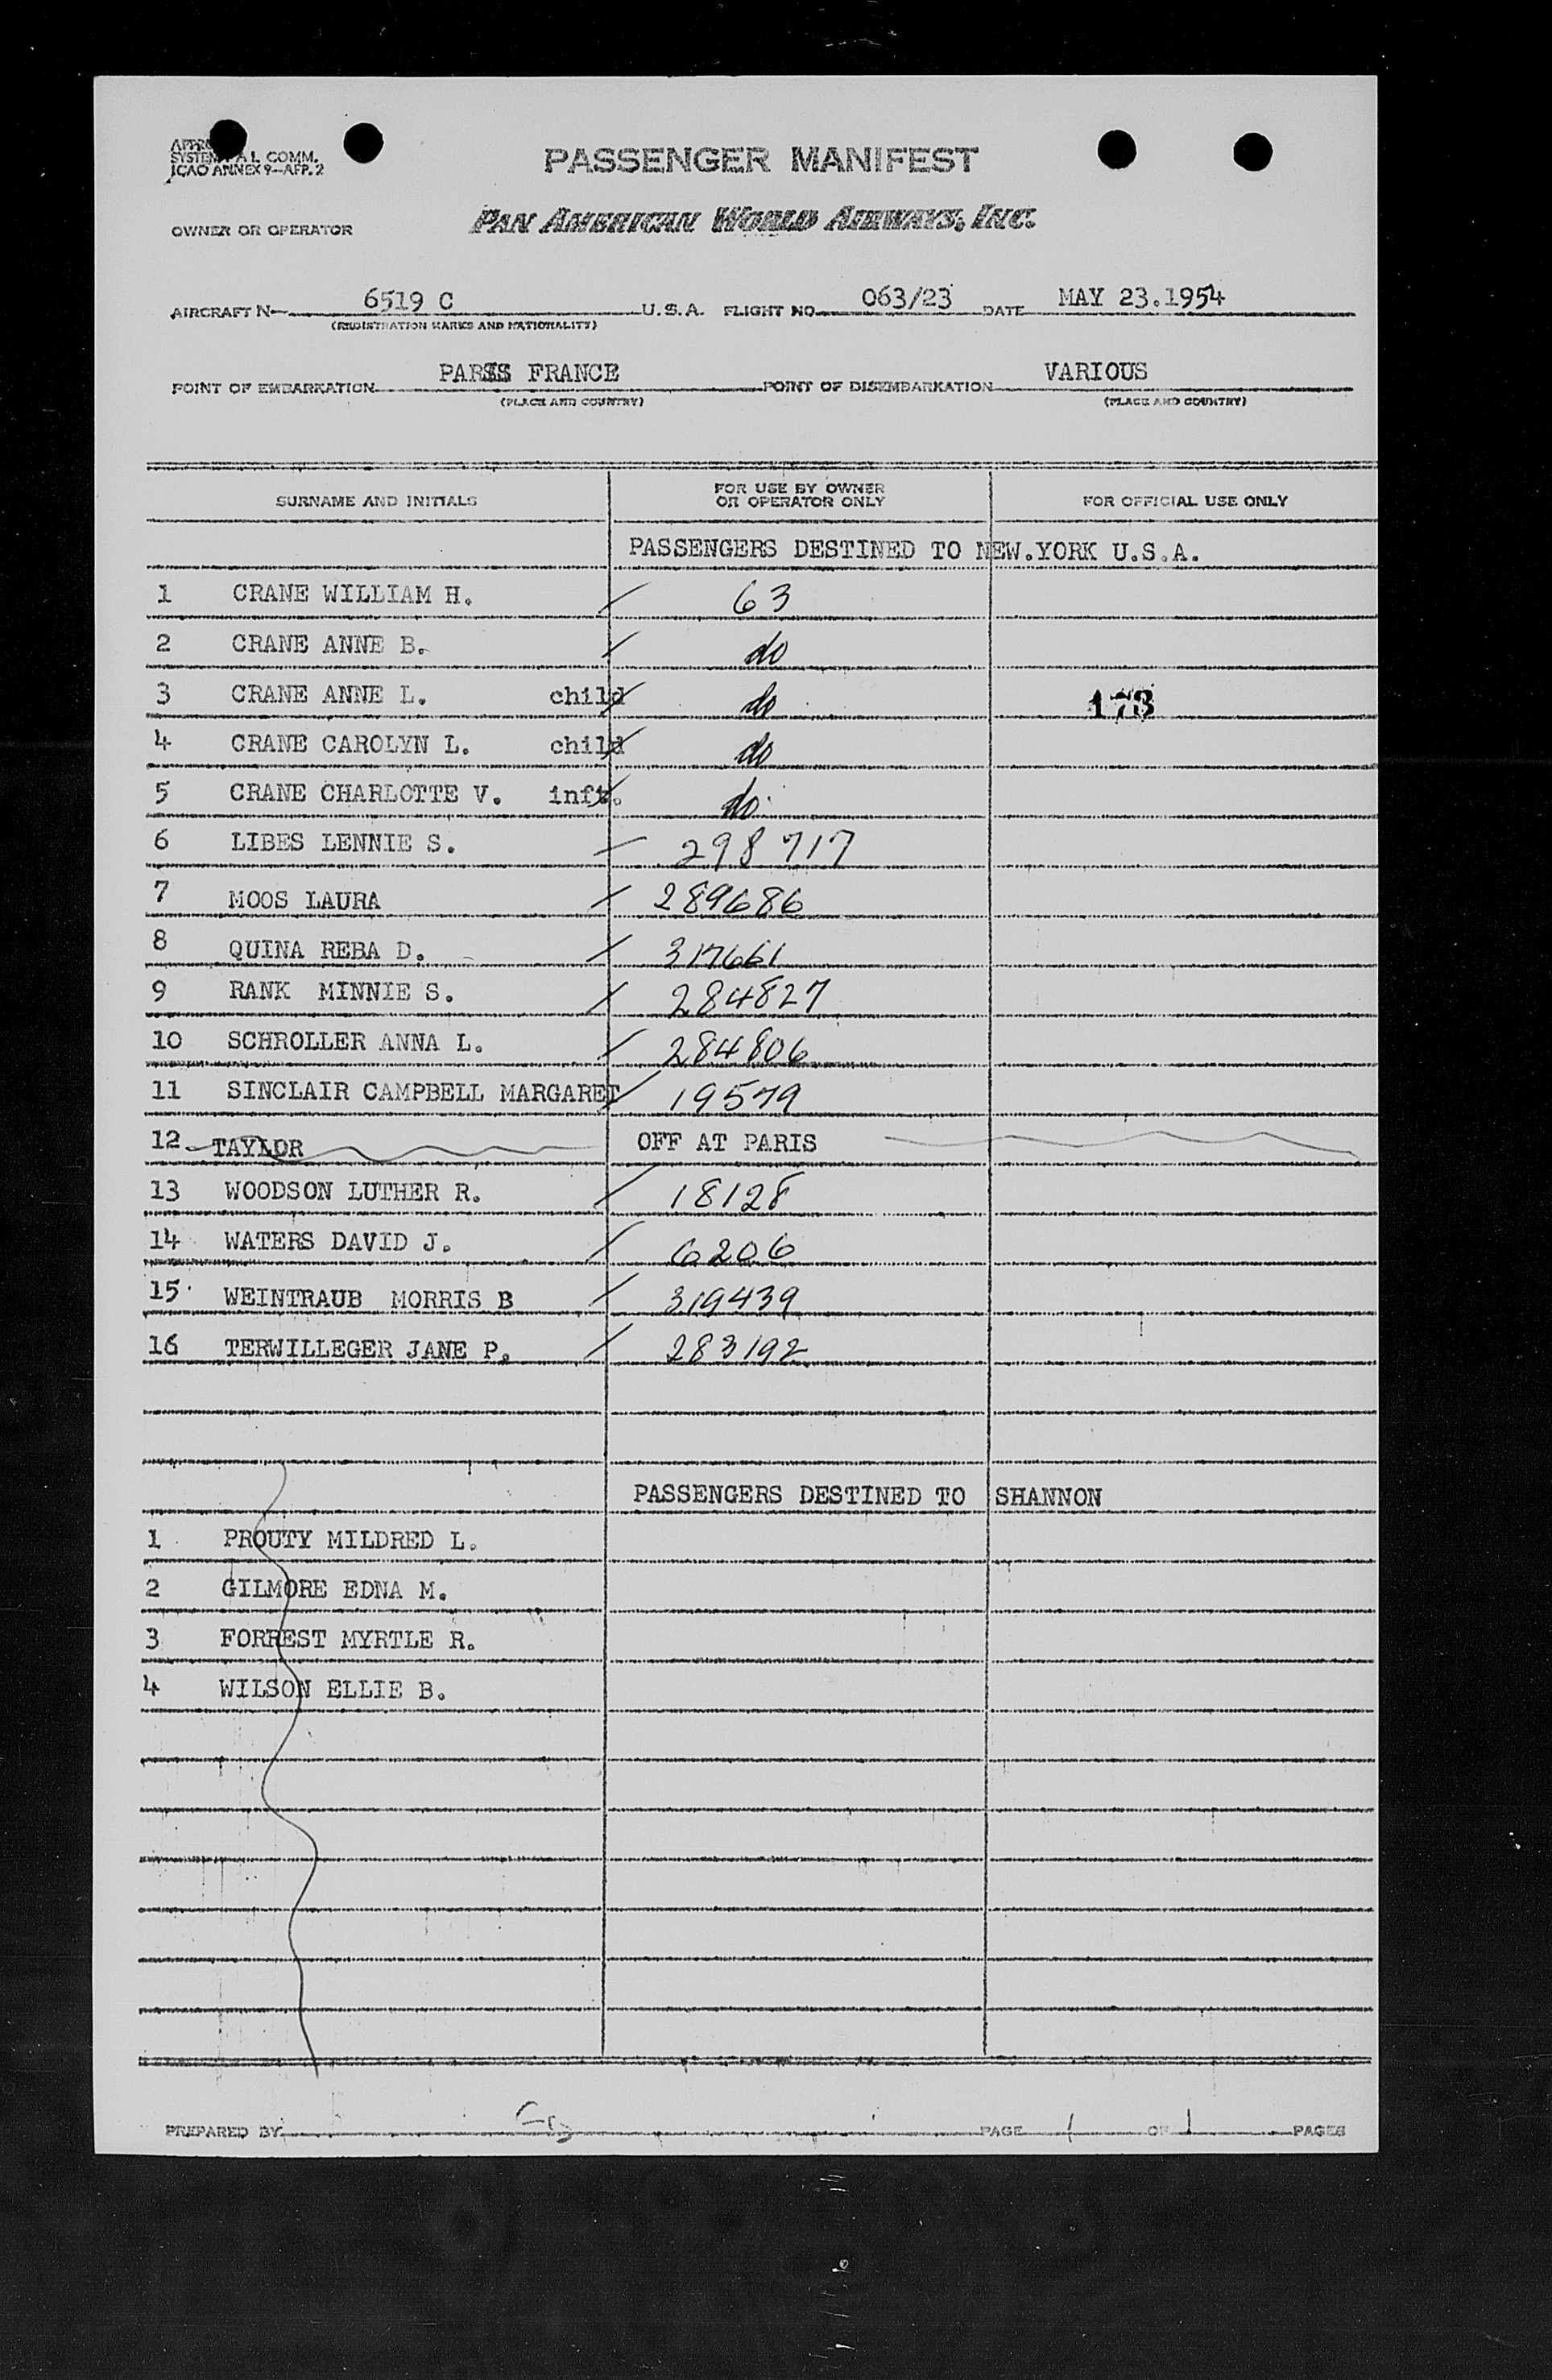 SYSTEM COMM.
ICAO ANNEX 9—APP. 2
PASSENGER MANIFEST
OWNER OR OPERATOR PAN AMERICAN WORLD AIRWAYS, INC.
AIRCRAFT N— 6519 C U.S.A. FLIGHT NO. 063/23 DATE MAY 23.1954
(REGISTRATION MARKS AND NATIONALITY)
POINT OF EMBARKATION PARIS FRANCE POINT OF DISEMBARKATION VARIOUS
(PLACE AND COUNTRY) (PLACE AND COUNTRY)
SURNAME AND INITIALS FOR USE BY OWNER OR OPERATOR ONLY FOR OFFICIAL USE ONLY
PASSENGERS DESTINED TO NEW.YORK U.S.A.
1 CRANE WILLIAM H. / 63
2 CRANE ANNE B. / do
3 CRANE ANNE L. child / do 173
4 CRANE CAROLYN L. child / do
5 CRANE CHARLOTTE V. inft. / do
6 LIBES LENNIE S. / 298717
7 MOOS LAURA / 289686
8 QUINA REBA D. / 317661
9 RANK MINNIE S. / 284827
10 SCHROLLER ANNA L. / 284806
11 SINCLAIR CAMPBELL MARGARET / 19579
12 TAYLOR OFF AT PARIS
13 WOODSON LUTHER R. / 18128
14 WATERS DAVID J. / 6206
15 WEINTRAUB MORRIS B / 319439
16 TERWILLEGER JANE P. / 283192
PASSENGERS DESTINED TO SHANNON
1 PROUTY MILDRED L.
2 GILMORE EDNA M.
3 FORREST MYRTLE R.
4 WILSON ELLIE B.
PREPARED BY PAGE 1 OF 1 PAGES